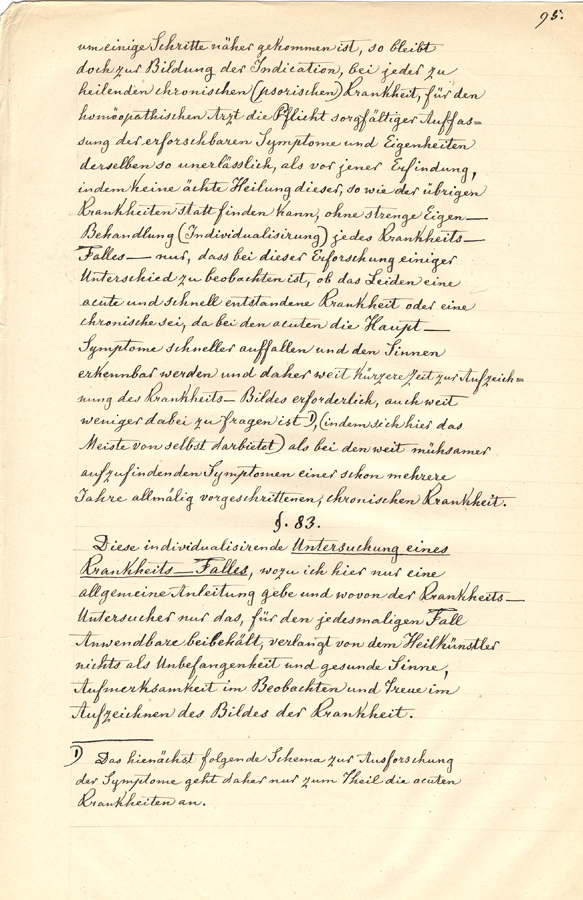 95.
um einige Schritte näher gekommen ist, so bleibt
doch zur Bildung der Indication, bei jeder zu
heilenden chronischen (psorischen) Krankheit, für den
homöopathischen Arzt die Pflicht sorgfältiger Auffas=
sung der erforschbaren Symptome und Eigenheiten
derselben so unerlässlich, als vor jener Erfindung,
indem keine ächte Heilung dieser, so wie der übrigen
Krankheiten statt finden kann, ohne strenge Eigen—
Behandlung (Individualisirung) jedes Krankheits—
Falles— nur, dass bei dieser Erforschung einiger
Unterschied zu beobachten ist, ob das Leiden eine
acute und schnell entstandene Krankheit oder eine
chronische sei, da bei den acuten die Haupt—
Symptome schneller auffallen und den Sinnen
erkennbar werden und daher weit kürzere Zeit zur Aufzeich=
nung des Krankheits— Bildes erforderlich, auch weit
weniger dabei zu fragen ist 1), (indem sich hier das
Meiste von selbst darbietet) als bei den weit mühsamer
aufzufindenden Symptomen einer schon mehrere
Jahre allmälig vorgeschrittenen, chronischen Krankheit.
§. 83.
Diese individualisirende Untersuchung eines
Krankheits—Falles, wozu ich hier nur eine
allgemeine Anleitung gebe und wovon der Krankheits—
Untersucher nur das, für den jedesmaligen Fall
Anwendbare beibehält, verlangt von dem Heilkünstler
nichts als Unbefangenheit und gesunde Sinne,
Aufmerksamkeit im Beobachten und Treue im
Aufzeichnen des Bildes der Krankheit.
1) Das hienächst folgende Schema zur Ausforschung
der Symptome geht daher nur zum Theil die acuten
Krankheiten an.